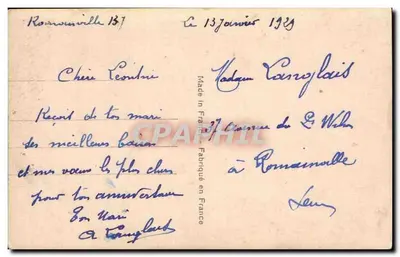 Romainville
Le 13 Janvier 1929
Chère Léontine
Reçoit de ton mari
ses meilleurs baisers
et mes vœux les plus chers
pour ton anniversaire
Ton Mari
A Langlais
Made in France Fabriqué en France
Madame Langlais
37 Avenue du Pt Wilson
à Romainville
Seine
CPAPHIL